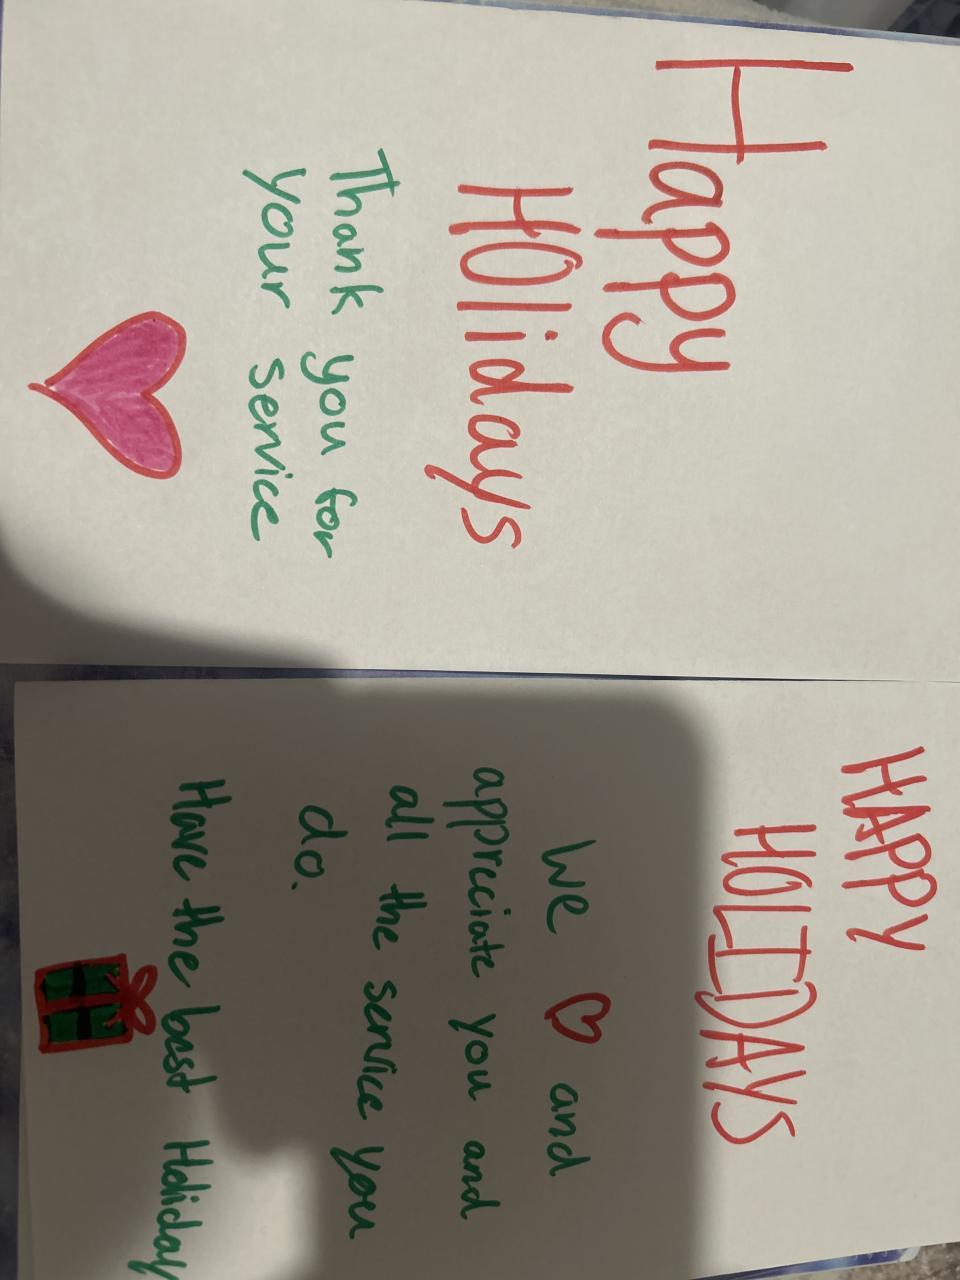 Happy
HOlidays
Thank you for
your service
HAPPY
HOLIDAYS
We ♡ and
appreciate you and
all the service you
do.
Have the best Holiday